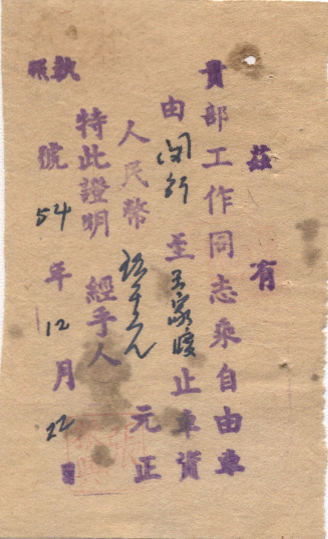 茲有
貴部工作同志乘自由車
由闵行至王家渡止車資
人民幣伍千元元正
特此證明 經手人
執照號 54年12月22日